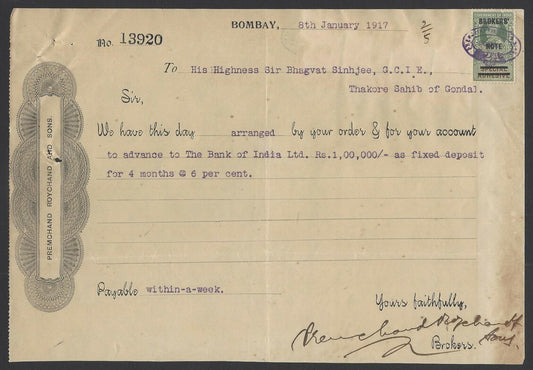 BOMBAY, 8th January 1917
2/5
BROKERS'
NOTE
No. 13920
To His Highness Sir Bhagvat Sinhjee, G.C.I E.,
Thakore Sahib of Gondal.
Sir,
We have this day arranged by your order & for your account
to advance to The Bank of India Ltd. Rs.1,00,000/- as fixed deposit
for 4 months @ 6 per cent.
PREMCHAND ROYCHAND AND SONS.
Payable within-a-week.
Yours faithfully,
Premchand Roychand &
Sons.
Brokers.